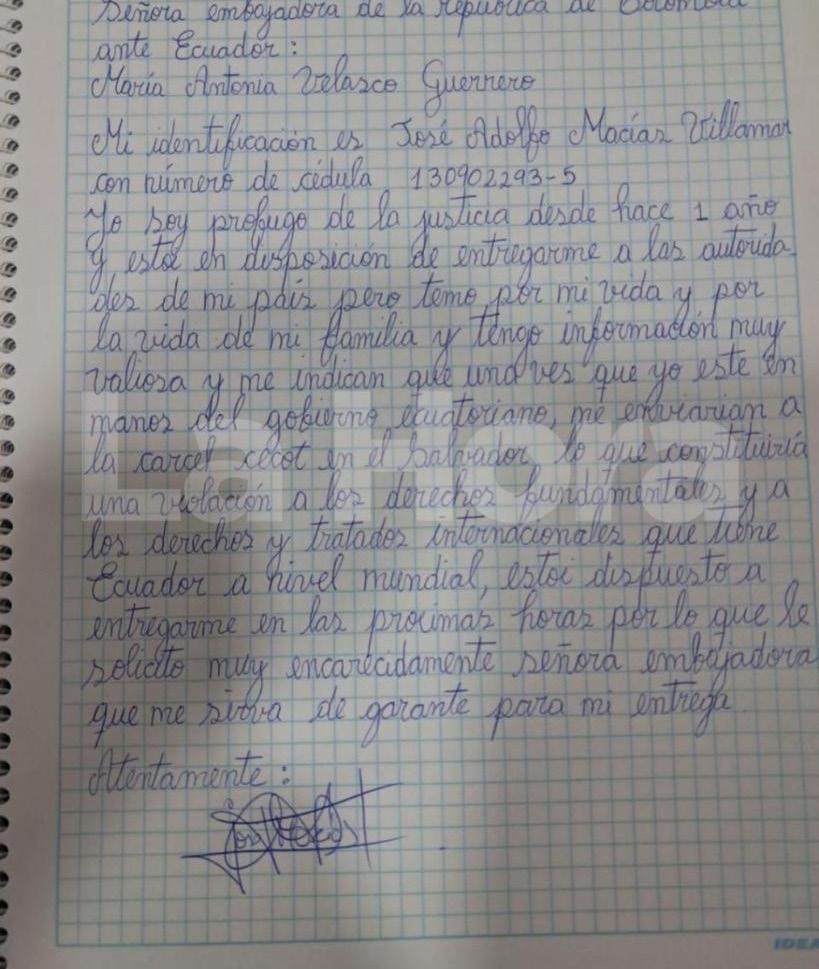 Señora embajadora de la República de Colombia
ante Ecuador:
María Antonia Velasco Guerrero
Mi identificación es José Adolfo Macías Villamar
con número de cédula 130902293-5
Yo soy profugo de la justicia desde hace 1 año
y estoi en disposición de entregarme a las autorida
des de mi país pero temo por mi vida y por
la vida de mi familia y tengo información muy
valiosa y me indican que una ves que yo este en
manos del gobierno ecuatoriano, me enviarian a
la carcel cecot en el Salvador, lo que constituiría
una violación a los derechos fundamentales y a
los derechos y tratados internacionales que tiene
Ecuador a nivel mundial, estoi dispuesto a
entregarme en las proximas horas por lo que le
solicito muy encarecidamente señora embajadora
que me sirva de garante para mi entrega
Atentamente:
La Hora
IDEA